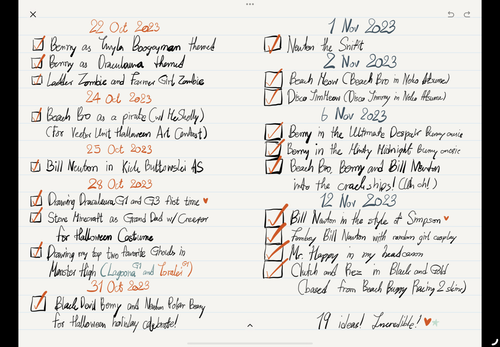 22 Oct 2023
Benny as Twyla Boogeyman themed
Benny as Draculaura themed
Ladder Zombie and Farmer Girl Zombie
24 Oct 2023
Beach Bro as a pirate (w/ McSkelly)
(For Vector Unit Halloween Art Contest)
25 Oct 2023
Bill Newton in Kick Buttowski AS
28 Oct 2023
Drawing Draculaura G1 and G3 first time
Steve Minecraft as Grand Dad w/ Creeper
for Halloween Costume
Drawing my top two favorite Ghouls in
Monster High (Lagoona G1 and Toralei G1)
31 Oct 2023
Black Devil Benny and Newton Polar Benny
for Halloween holiday celebrate!
1 Nov 2023
Newton the
2 Nov 2023
Beach Meow (Beach Bro in Neko Atsume)
Disco JimMeow (Disco Jimmy in Neko Atsume)
6 Nov 2023
Benny in the Ultimate Despair Bunny onesie
Benny in the Kinky Midnight Bunny onesie
Beach Bro, Benny and Bill Newton
into the crackships! (Uh oh!)
12 Nov 2023
Bill Newton in the style of Simpson
Bill Newton with random girl cosplay
Mr. Happy in my headcanon
Clutch and Rez in Black and Gold
(based from Beach Buggy Racing 2 skins)
19 ideas! Incredible!